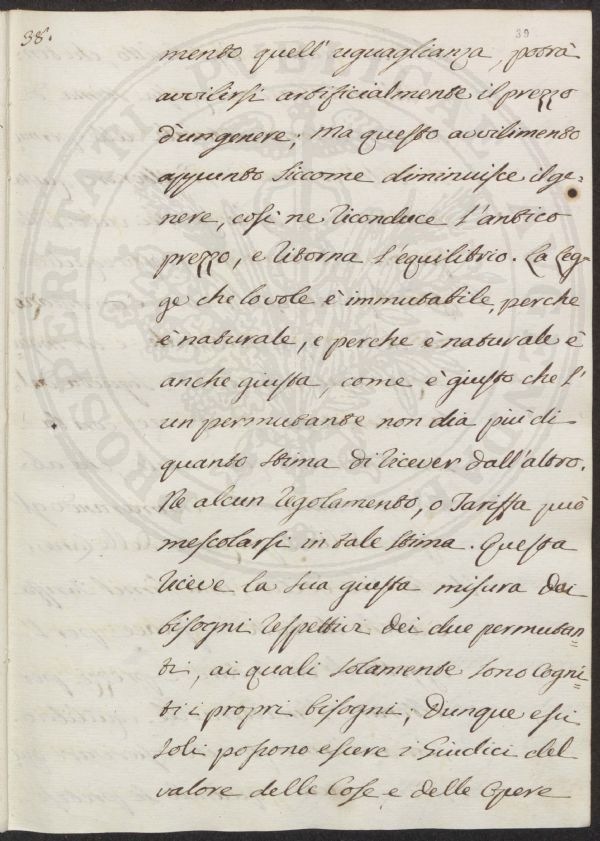 38.
39
mento quell' uguaglianza, potrà
avvilirsi artificialmente il prezzo
d'un genere; Ma questo avvilimento
appunto siccome diminuisce il ge-
nere, così ne riconduce l'antico
prezzo, e ritorna l'équilibrio. La Leg-
ge che lo vole è immutabile, perche
è naturale, e perche è naturale è
anche giusta, come è giusto che l'
un permutante non dia più di
quanto stima di ricever dall'altro.
Ne alcun regolamento, o Tariffa può
mescolarsi in tale stima. Questa
riceve la sua giusta misura dai
bisogni respettivi dei due permutan-
ti, ai quali solamente sono cogni-
ti i propri bisogni; Dunque essi
soli possono essere i Giudici del
valore delle Cose e delle Opere